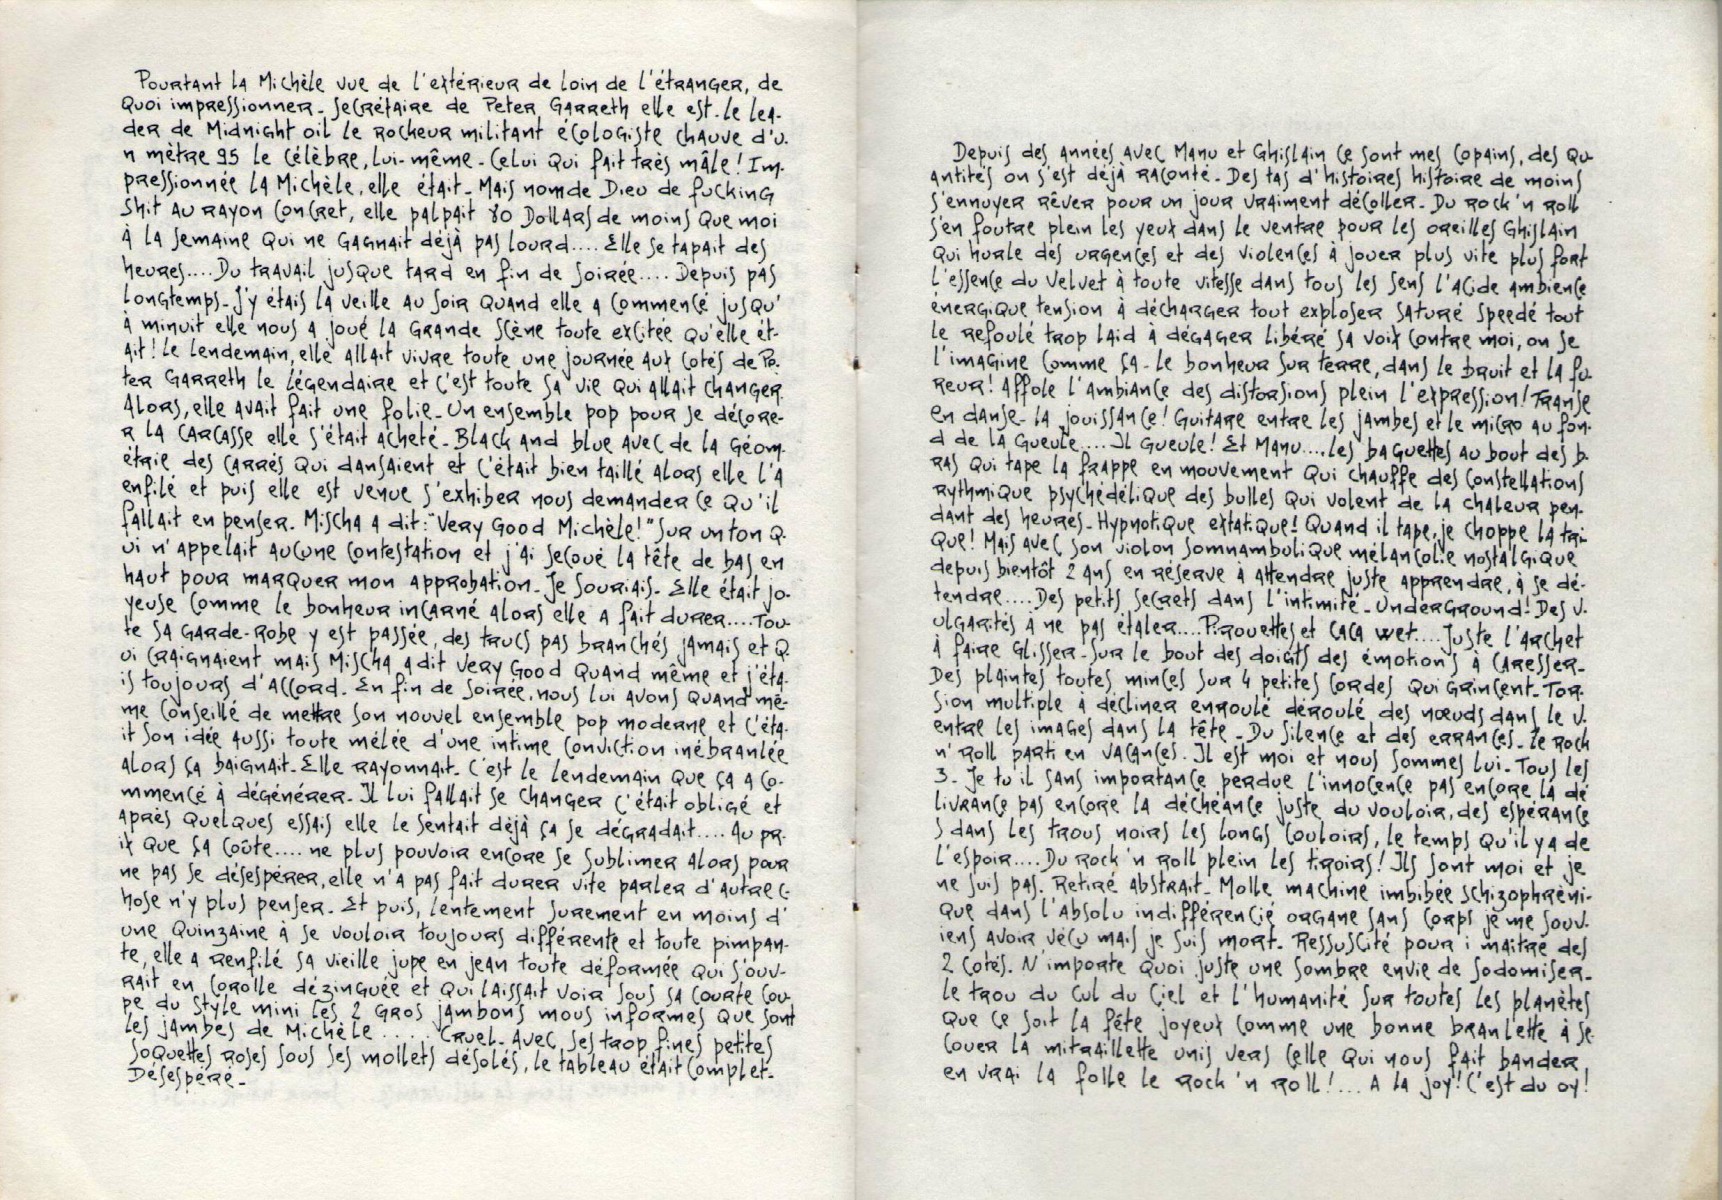 Pourtant la Michèle vue de l'extérieur de loin de l'étranger, de
quoi impressionner - secrétaire de Peter Garreth elle est - le lea-
der de Midnight oil le rockeur militant écologiste chauve d'u-
n mètre 95 le célèbre, lui-même - celui qui fait très mâle! Im-
pressionnée la Michèle, elle était - Mais nom de Dieu de fucking
shit au rayon concret, elle palpait 80 Dollars de moins que moi
à la semaine qui ne gagnait déjà pas lourd.... Elle se tapait des
heures.... Du travail jusque tard en fin de soirée..... Depuis pas
longtemps - J'y étais la veille au soir quand elle a commencé jusqu'
à minuit elle nous a joué la grande scène toute excitée qu'elle ét-
ait! Le lendemain, elle allait vivre toute une journée aux cotés de Pe-
ter Garreth le légendaire et c'est toute sa vie qui allait changer
Alors, elle avait fait une folie - Un ensemble pop pour se décore-
r la carcasse elle s'était acheté - Black and blue avec de la géom-
étrie des carrés qui dansaient et c'était bien taillé alors elle l'a
enfilé et puis elle est venue s'exhiber nous demander ce qu'il
fallait en penser. Mischa a dit: "Very Good Michèle!" Sur un ton q-
ui n'appelait aucune contestation et j'ai secoué la tête de bas en
haut pour marquer mon approbation - Je souriais - Elle était jo-
yeuse comme le bonheur incarné alors elle a fait durer.... Tou-
te sa garde-robe y est passée, des trucs pas branchés jamais et q-
ui craignaient mais Mischa a dit Very Good quand même et j'éta-
is toujours d'accord. En fin de soirée, nous lui avons quand mê-
me conseillé de mettre son nouvel ensemble pop moderne et c'éta-
it son idée aussi toute mêlée d'une intime conviction inébranlée
alors ça baignait - Elle rayonnait - C'est le lendemain que ça a co-
mmencé à dégénérer - Il lui fallait se changer c'était obligé et
après quelques essais elle le sentait déjà ça se dégradait.... Au pr-
ix que ça coûte.... ne plus pouvoir encore se sublimer alors pour
ne pas se désespérer, elle n'a pas fait durer vite parler d'autre c-
hose n'y plus penser - Et puis, lentement surement en moins d'
une quinzaine à se vouloir toujours différente et toute pimpan-
te, elle a renfilé sa vieille jupe en jean toute déformée qui s'ouv-
rait en corolle dézinguée et qui laissait voir sous sa courte cou-
pe du style mini les 2 gros jambons mous informes que sont
les jambes de Michèle ...... Cruel - Avec ses trop fines petites
soquettes roses sous ses mollets désolés, le tableau était complet -
Désespéré -
Depuis des années avec Manu et Ghislain ce sont mes copains, des qu-
antités on s'est déjà raconté - Des tas d'histoires histoire de moins
s'ennuyer rêver pour un jour vraiment décoller - Du rock'n roll
s'en foutre plein les yeux dans le ventre pour les oreilles Ghislain
qui hurle des urgences et des violences à jouer plus vite plus fort
l'essence du Velvet à toute vitesse dans tous les sens l'acide ambience
énergique tension à décharger tout exploser saturé speedé tout
le refoulé trop laid à dégager libéré sa voix contre moi, on se
l'imagine comme ça - le bonheur sur terre, dans le bruit et la fu-
reur! Affole l'ambiance des distorsions plein l'expression! Transe
en danse - la jouissance! Guitare entre les jambes et le micro au fon-
d de la gueule.... Il gueule! Et Manu.... les baguettes au bout des b-
ras qui tape la frappe en mouvement qui chauffe des constellations
rythmique psychédélique des bulles qui volent de la chaleur pen-
dant des heures - Hypnotique extatique! Quand il tape, je choppe la tri-
que! Mais avec son violon somnambulique mélancolie nostalgique
depuis bientôt 2 ans en réserve à attendre juste apprendre, à se dé-
tendre.... Des petits secrets dans l'intimité - Underground! Des v-
ulgarités à ne pas étaler.... Pirouettes et caca wet.... Juste l'archet
à faire glisser - sur le bout des doigts des émotions à caresser -
Des plaintes toutes minces sur 4 petites cordes qui grincent - Tor-
sion multiple à décliner enroulé déroulé des nœuds dans le v-
entre les images dans la tête - Du silence et des errances - Le rock
n'roll parti en vacances. Il est moi et nous sommes lui - Tous les
3 - Je tu il sans importance perdue l'innocence pas encore la dé
livrance pas encore la déchéance juste du vouloir, des espérance
s dans les trous noirs les longs couloirs, le temps qu'il y a de
l'espoir.... Du rock'n roll plein les tiroirs! Ils sont moi et je
ne suis pas. Retiré abstrait - Molle machine imbibée schizophréni-
que dans l'absolu indifférencié organe sans corps je me souv-
iens avoir vécu mais je suis mort - Ressuscité pour i maitre des
2 cotés. N'importe quoi juste une sombre envie de sodomiser -
le trou du cul du ciel et l'humanité sur toutes les planètes
que ce soit la fête joyeux comme une bonne branlette à se-
couer la mitraillette unis vers celle qui nous fait bander
en vrai la folle le rock'n roll!... A la joy! C'est du oy!